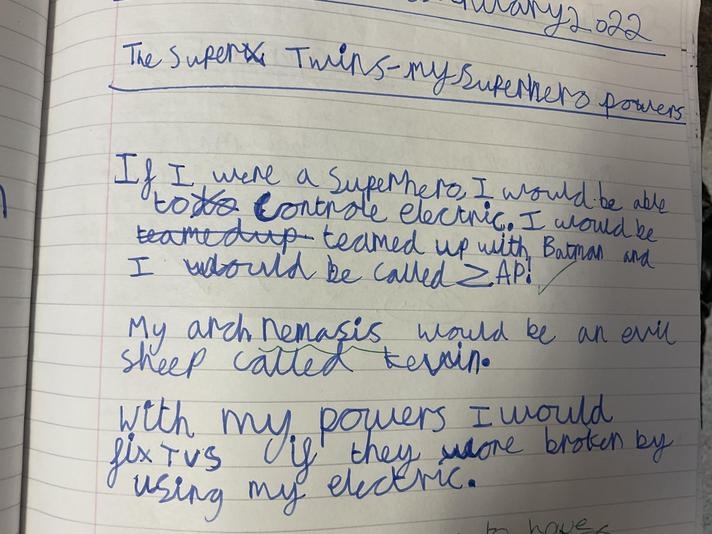 2022
The Super Twins-my superhero powers
If I were a superhero, I would be able
to controle electric. I would be
teamedup teamed up with Batman and
I would be called ZAP!
My arch nemasis would be an evil
sheep called kevin.
with my powers I would
fix TVs if they were broken by
using my electric.
to have